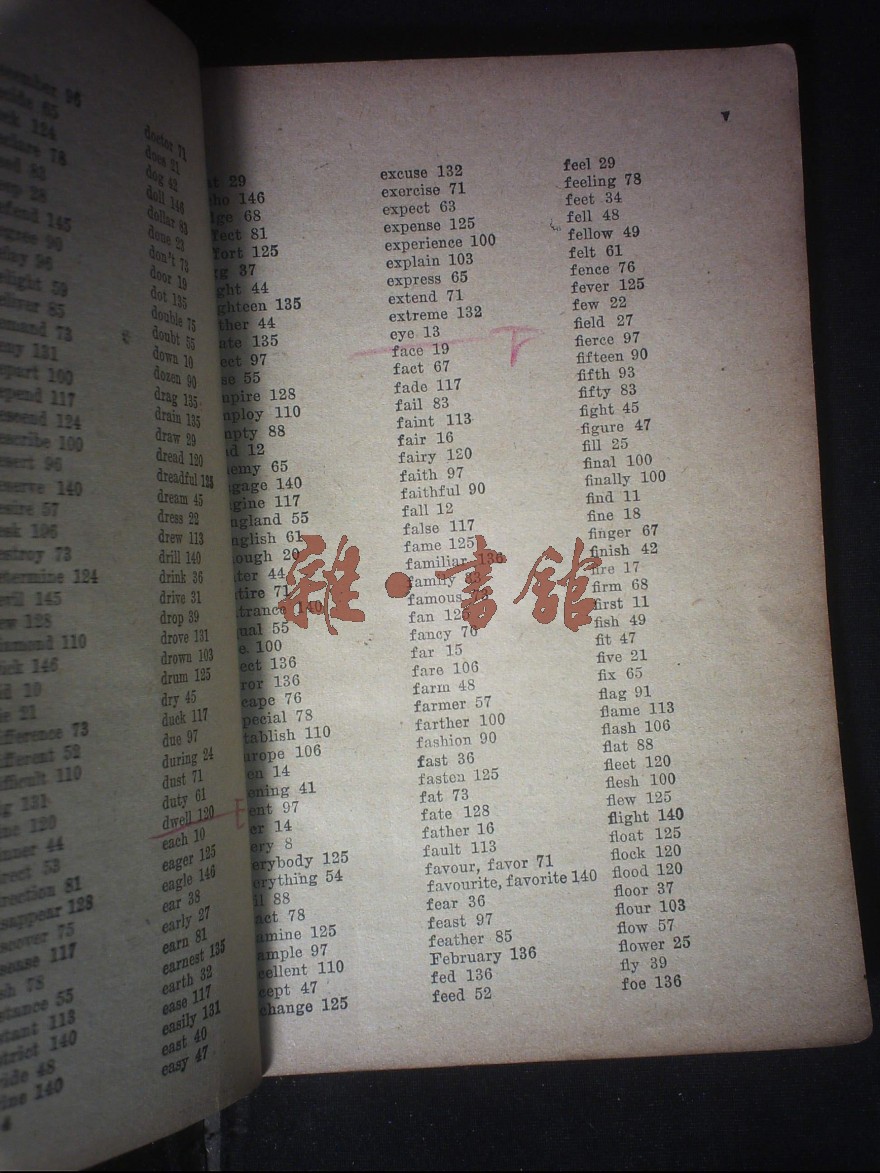 96
65
124
78
83
28
145
90
96
59
85
73
131
100
117
124
100
96
140
57
106
73
124
145
128
110
146
19
21
73
52
110
131
120
44
53
81
128
75
117
78
55
113
140
48
140
doctor 71
does 21
dog 42
doll 146
dollar 83
done 23
don't 73
door 19
dot 135
double 75
doubt 55
down 10
dozen 90
drag 135
drain 135
draw 29
dread 120
dreadful 128
dream 45
dress 22
drew 113
drill 140
drink 36
drive 31
drop 39
drove 131
drown 103
drum 125
dry 45
duck 117
due 97
during 24
dust 71
duty 61
dwell 120
each 10
eager 125
eagle 146
ear 38
early 27
earn 81
earnest 135
earth 32
ease 117
easily 131
east 40
easy 47
st 29
ho 146
ge 68
fect 81
fort 125
g 37
ght 44
ghteen 135
ther 44
ate 135
ect 97
se 55
pire 128
ploy 110
pty 88
d 12
emy 65
gage 140
gine 117
gland 55
glish 61
ough 20
ter 44
tire 71
trance 140
ual 55
e 100
ect 136
ror 136
cape 76
pecial 78
tablish 110
urope 106
en 14
ening 41
ent 97
er 14
ery 8
erybody 125
erything 54
il 88
act 78
amine 125
ample 97
cellent 110
cept 47
change 125
▼
excuse 132
exercise 71
expect 63
expense 125
experience 100
explain 103
express 65
extend 71
extreme 132
eye 13
face 19
fact 67
fade 117
fail 83
faint 113
fair 16
fairy 120
faith 97
faithful 90
fall 12
false 117
fame 125
familiar 136
family 33
famous
fan 125
fancy 76
far 15
fare 106
farm 48
farmer 57
farther 100
fashion 90
fast 36
fasten 125
fat 73
fate 128
father 16
fault 113
favour, favor 71
favourite, favorite 140
fear 36
feast 97
feather 85
February 136
fed 136
feed 52
feel 29
feeling 78
feet 34
fell 48
fellow 49
felt 61
fence 76
fever 125
few 22
field 27
fierce 97
fifteen 90
fifth 93
fifty 83
fight 45
figure 47
fill 25
final 100
finally 100
find 11
fine 18
finger 67
finish 42
fire 17
firm 68
first 11
fish 49
fit 47
five 21
fix 65
flag 91
flame 113
flash 106
flat 88
fleet 120
flesh 100
flew 125
flight 140
float 125
flock 120
flood 120
floor 37
flour 103
flow 57
flower 25
fly 39
foe 136
雜·書館